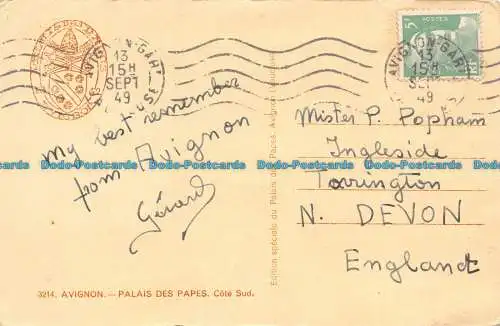 AVIGNON-GARE
13
15H
SEPT
49
AVIGNON-GARE
13
15H
SEPT
49
5F
POSTES
My best remember
from Avignon
Gérard
Mister P. Popham
Ingleside
Torrington
N. DEVON
England
Edition spéciale du Palais des Papes, Avignon
3214. AVIGNON. — PALAIS DES PAPES. Côté Sud.
Dodo-Postcards Dodo-Postcards Dodo-Postcards Dodo-Postcards Dodo-Postcards Dodo-Postcards